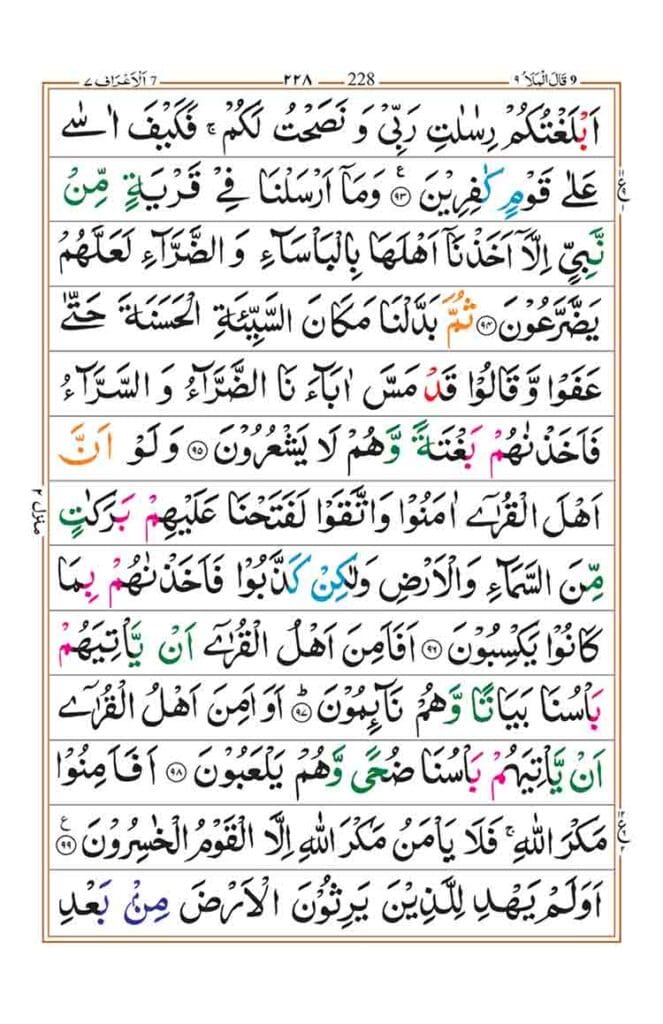 9 قَالَ الْمَلَاُ ٩ 228 ٢٢٨ 7 اَلْاَعْرَاف ٧
اَبْلَغْتُكُمْ رِسٰلٰتِ رَبِّیْ وَ نَصَحْتُ لَكُمْ ۚ فَكَیْفَ اٰسٰی
عَلٰی قَوْمٍ كٰفِرِیْنَ ﴿۹۳﴾ وَمَاۤ اَرْسَلْنَا فِیْ قَرْیَةٍ مِّنْ
نَّبِیٍّ اِلَّاۤ اَخَذْنَاۤ اَهْلَهَا بِالْبَاْسَآءِ وَ الضَّرَّآءِ لَعَلَّهُمْ
یَضَّرَّعُوْنَ ﴿۹۴﴾ ثُمَّ بَدَّلْنَا مَكَانَ السَّیِّئَةِ الْحَسَنَةَ حَتّٰی
عَفَوْا وَّ قَالُوْا قَدْ مَسَّ اٰبَآءَ نَا الضَّرَّآءُ وَ السَّرَّآءُ
فَاَخَذْنٰهُمْ بَغْتَةً وَّ هُمْ لَا یَشْعُرُوْنَ ﴿۹۵﴾ وَ لَوْ اَنَّ
اَهْلَ الْقُرٰۤی اٰمَنُوْا وَاتَّقَوْا لَفَتَحْنَا عَلَیْهِمْ بَرَكٰتٍ
مِّنَ السَّمَآءِ وَالْاَرْضِ وَلٰكِنْ كَذَّبُوْا فَاَخَذْنٰهُمْ بِمَا
كَانُوْا یَكْسِبُوْنَ ﴿۹۶﴾ اَفَاَمِنَ اَهْلُ الْقُرٰۤی اَنْ یَّاْتِیَهُمْ
بَاْسُنَا بَیَاتًا وَّ هُمْ نَآئِمُوْنَ ﴿۹۷﴾ ؕ اَوَ اَمِنَ اَهْلُ الْقُرٰۤی
اَنْ یَّاْتِیَهُمْ بَاْسُنَا ضُحًی وَّ هُمْ یَلْعَبُوْنَ ﴿۹۸﴾ اَفَاَمِنُوْا
مَكْرَ اللّٰهِ ۚ فَلَا یَاْمَنُ مَكْرَ اللّٰهِ اِلَّا الْقَوْمُ الْخٰسِرُوْنَ ﴿۹۹﴾ ع
اَوَلَمْ یَهْدِ لِلَّذِیْنَ یَرِثُوْنَ الْاَرْضَ مِنْۢ بَعْدِ
منزل ۲